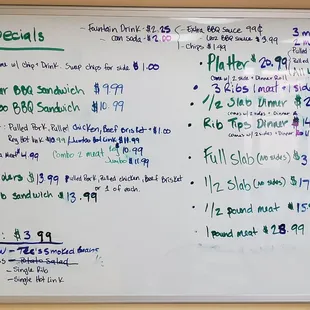 ecials
Fountain Drink - $2.25
Can Soda - $2.00
- Extra BBQ Sauce 99¢
BBQ Sauce $9.99
- Chips $1.99
w/ Chip + Drink. Swap chips for side $1.00
BBQ Sandwich $9.99
BBQ Sandwich $10.99
: Pulled Pork, Pulled Chicken, Beef Brisket + $1.00
Hot Link $10.99 / Jumbo Hot Link $11.99
$4.99 Combo 2 meat $10.99
Jumbo $11.99
ders $13.99 Pulled Pork, Pulled Chicken, Beef Brisket
or 1 of each.
b sandwich $13.99
: $3.99
Smoked Beans
- Potato Salad
- Single Rib
- Single Hot Link
Platter $20.99
comes w/ 2 sides + Dinner Roll
• 3 Ribs 1 meat + 1 side
• 1/2 Slab Dinner $2
Rib Tips Dinner
Full slab (no sides) $3
• 1/2 Slab (no sides) $17
• 1/2 pound meat $15
• 1 pound meat $28.99